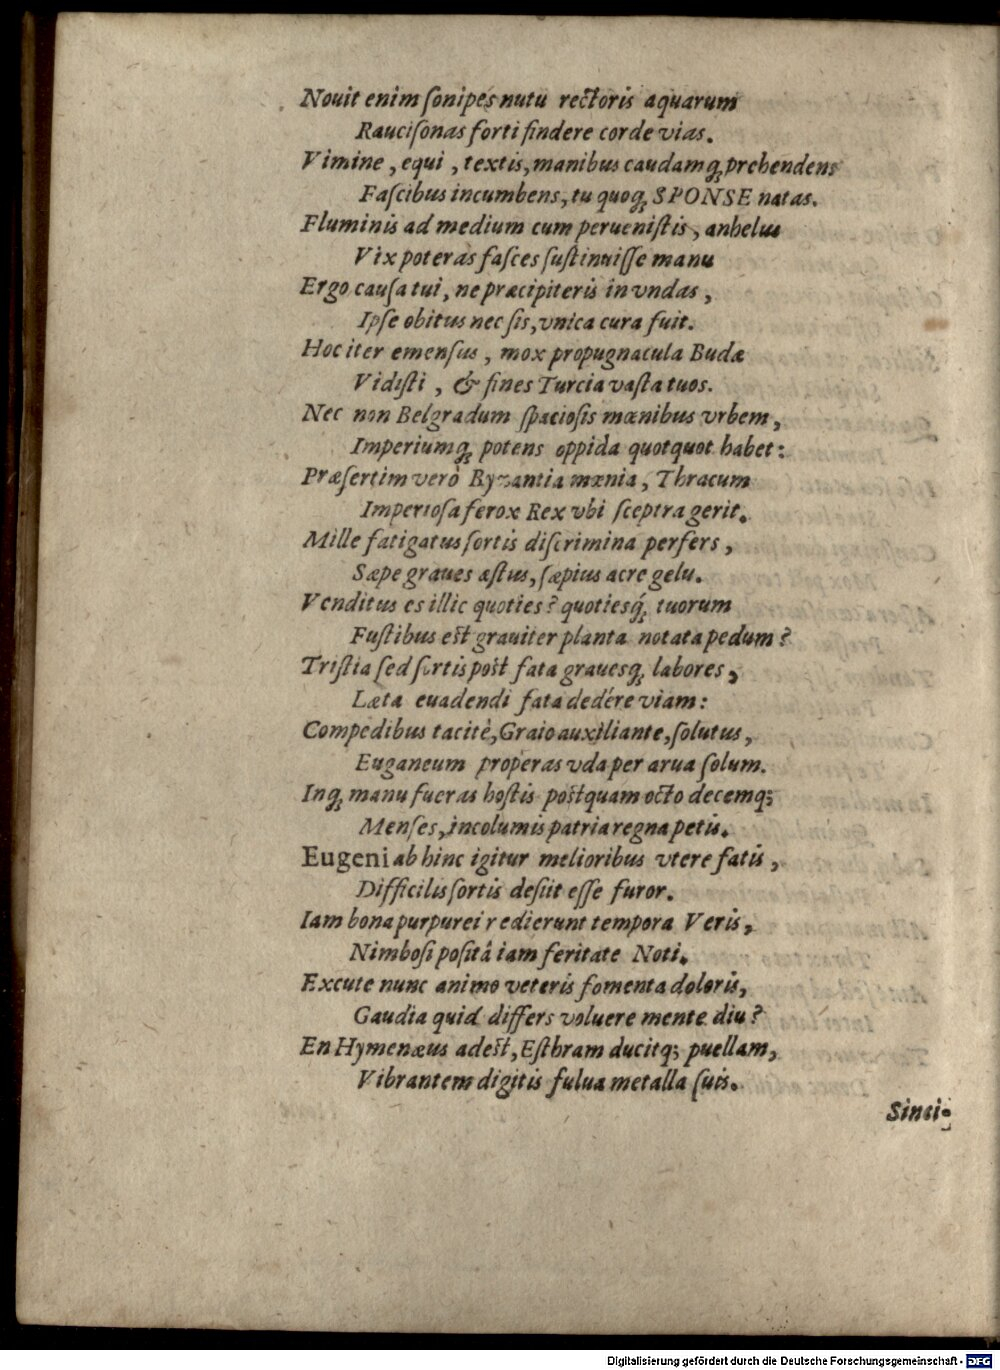 Nouit enim ſonipes nutu rectoris aquarum
Rauciſonas forti findere corde vias.
Vimine, equi, textis, manibus caudamq́; prehendens
Faſcibus incumbens, tu quoq́; SPONSE natas.
Fluminis ad medium cum perueniſtis, anhelus
Vix poteras faſces ſuſtinuiſſe manu
Ergo cauſa tui, ne præcipiteris in vndas,
Ipſe obitus nec ſis, vnica cura fuit.
Hoc iter emenſus, mox propugnacula Budæ
Vidiſti, & fines Turcia vaſta tuos.
Nec non Belgradum ſpacioſis mœnibus vrbem,
Imperiumq́; potens oppida quotquot habet:
Præſertim verò Byzantia mœnia, Thracum
Imperioſa ferox Rex vbi ſceptra gerit.
Mille fatigatus ſortis diſcrimina perfers,
Sæpe graues æſtus, ſæpius acre gelu.
Venditus es illic quoties? quotiesq́; tuorum
Fuſtibus eſt grauiter planta notata pedum?
Triſtia ſed ſortis poſt fata grauesq́; labores,
Læta euadendi fata dedére viam:
Compedibus tacitè, Graio auxiliante, ſolutus,
Euganeum properas vda per arua ſolum.
Inq́; manu fueras hoſtis poſtquam octo decemq;
Menſes, incolumis patria regna petis.
Eugeni ab hinc igitur melioribus vtere fatis,
Difficilis ſortis deſiit eſſe furor.
Iam bona purpurei redierunt tempora Veris,
Nimboſi poſitâ iam feritate Noti.
Excute nunc animo veteris fomenta doloris,
Gaudia quid differs voluere mente diu?
En Hymenæus adeſt, Eſthram ducitq; puellam,
Vibrantem digitis fulua metalla ſuis.
Sinci-
Digitalisierung gefördert durch die Deutsche Forschungsgemeinschaft - DFG